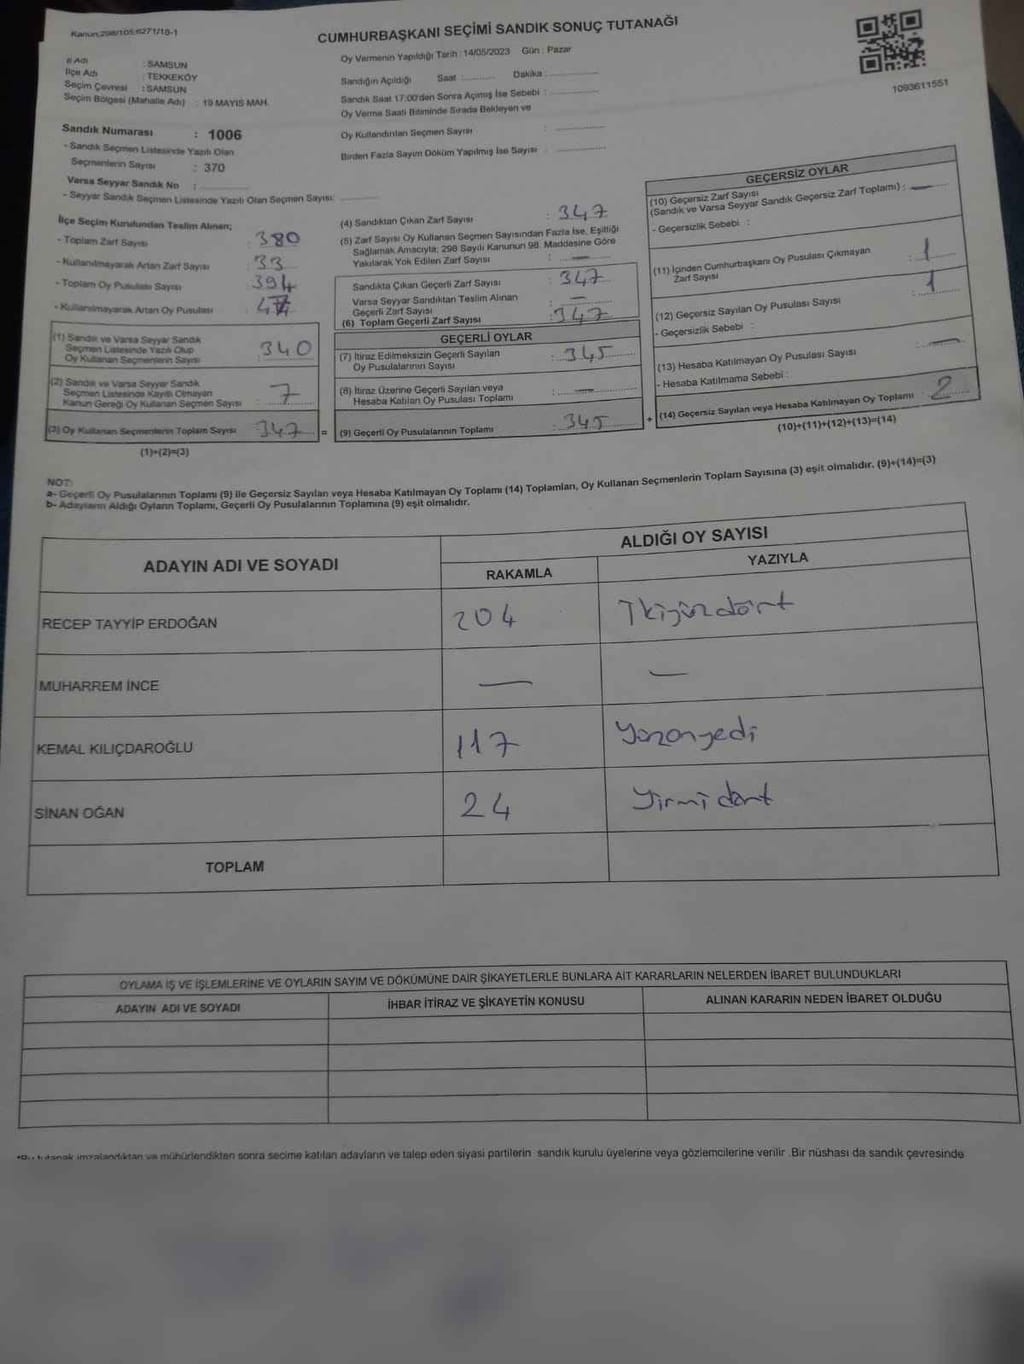 Kanun;298/105;6271/18-1
CUMHURBAŞKANI SEÇİMİ SANDIK SONUÇ TUTANAĞI
Oy Vermenin Yapıldığı Tarih : 14/05/2023 Gün : Pazar
1093611551
İl Adı : SAMSUN
İlçe Adı : TEKKEKÖY
Seçim Çevresi : SAMSUN
Seçim Bölgesi (Mahalle Adı) : 19 MAYIS MAH.
Sandık Numarası : 1006
- Sandık Seçmen Listesinde Yazılı Olan
Seçmenlerin Sayısı : 370
Varsa Seyyar Sandık No :
- Seyyar Sandık Seçmen Listesinde Yazılı Olan Seçmen Sayısı:
Sandığın Açıldığı Saat : Dakika :
Sandık Saat 17:00'den Sonra Açmış İse Sebebi :
Oy Verme Saati Bitiminde Sırada Bekleyen ve
Oy Kullandırılan Seçmen Sayısı :
Birden Fazla Sayım Döküm Yapılmış İse Sayısı :
İlçe Seçim Kurulundan Teslim Alınan;
- Toplam Zarf Sayısı : 380
- Kullanılmayarak Artan Zarf Sayısı : 33
- Toplam Oy Pusulası Sayısı : 394
- Kullanılmayarak Artan Oy Pusulası :
(1) Sandık ve Varsa Seyyar Sandık
Seçmen Listesinde Yazılı Olup
Oy Kullanan Seçmenlerin Sayısı : 340
(2) Sandık ve Varsa Seyyar Sandık
Seçmen Listesinde Kayıtlı Olmayan
Kanun Gereği Oy Kullanan Seçmen Sayısı : 7
(3) Oy Kullanan Seçmenlerin Toplam Sayısı : 347 =
(1)+(2)=(3)
(4) Sandıktan Çıkan Zarf Sayısı : 347
(5) Zarf Sayısı Oy Kullanan Seçmen Sayısından Fazla İse, Eşitliği
Sağlamak Amacıyla; 298 Sayılı Kanunun 98. Maddesine Göre
Yakılarak Yok Edilen Zarf Sayısı : —
Sandıkta Çıkan Geçerli Zarf Sayısı : 347
Varsa Seyyar Sandıktan Teslim Alınan
Geçerli Zarf Sayısı : —
(6) Toplam Geçerli Zarf Sayısı : 347
GEÇERLİ OYLAR
(7) İtiraz Edilmeksizin Geçerli Sayılan
Oy Pusulalarının Sayısı : 345
(8) İtiraz Üzerine Geçerli Sayılan veya
Hesaba Katılan Oy Pusulası Toplamı : —
(9) Geçerli Oy Pusulalarının Toplamı : 345 +
GEÇERSİZ OYLAR
(10) Geçersiz Zarf Sayısı
(Sandık ve Varsa Seyyar Sandık Geçersiz Zarf Toplamı) : —
- Geçersizlik Sebebi :
(11) İçinden Cumhurbaşkanı Oy Pusulası Çıkmayan
Zarf Sayısı : 1
(12) Geçersiz Sayılan Oy Pusulası Sayısı : 1
- Geçersizlik Sebebi :
(13) Hesaba Katılmayan Oy Pusulası Sayısı : —
- Hesaba Katılmama Sebebi :
(14) Geçersiz Sayılan veya Hesaba Katılmayan Oy Toplamı : 2
(10)+(11)+(12)+(13)=(14)
NOT:
a- Geçerli Oy Pusulalarının Toplamı (9) ile Geçersiz Sayılan veya Hesaba Katılmayan Oy Toplamı (14) Toplamları, Oy Kullanan Seçmenlerin Toplam Sayısına (3) eşit olmalıdır. (9)+(14)=(3)
b- Adayların Aldığı Oyların Toplamı, Geçerli Oy Pusulalarının Toplamına (9) eşit olmalıdır.
ADAYIN ADI VE SOYADI
ALDIĞI OY SAYISI
RAKAMLA YAZIYLA
RECEP TAYYİP ERDOĞAN 204 İkiyüzdört
MUHARREM İNCE — —
KEMAL KILIÇDAROĞLU 117 Yüzonyedi
SİNAN OĞAN 24 Yirmi dört
TOPLAM
OYLAMA İŞ VE İŞLEMLERİNE VE OYLARIN SAYIM VE DÖKÜMÜNE DAİR ŞİKAYETLERLE BUNLARA AİT KARARLARIN NELERDEN İBARET BULUNDUKLARI
ADAYIN ADI VE SOYADI İHBAR İTİRAZ VE ŞİKAYETİN KONUSU ALINAN KARARIN NEDEN İBARET OLDUĞU
*Bu tutanak imzalandıktan ve mühürlendikten sonra seçime katılan adayların ve talep eden siyasi partilerin sandık kurulu üyelerine veya gözlemcilerine verilir .Bir nüshası da sandık çevresinde